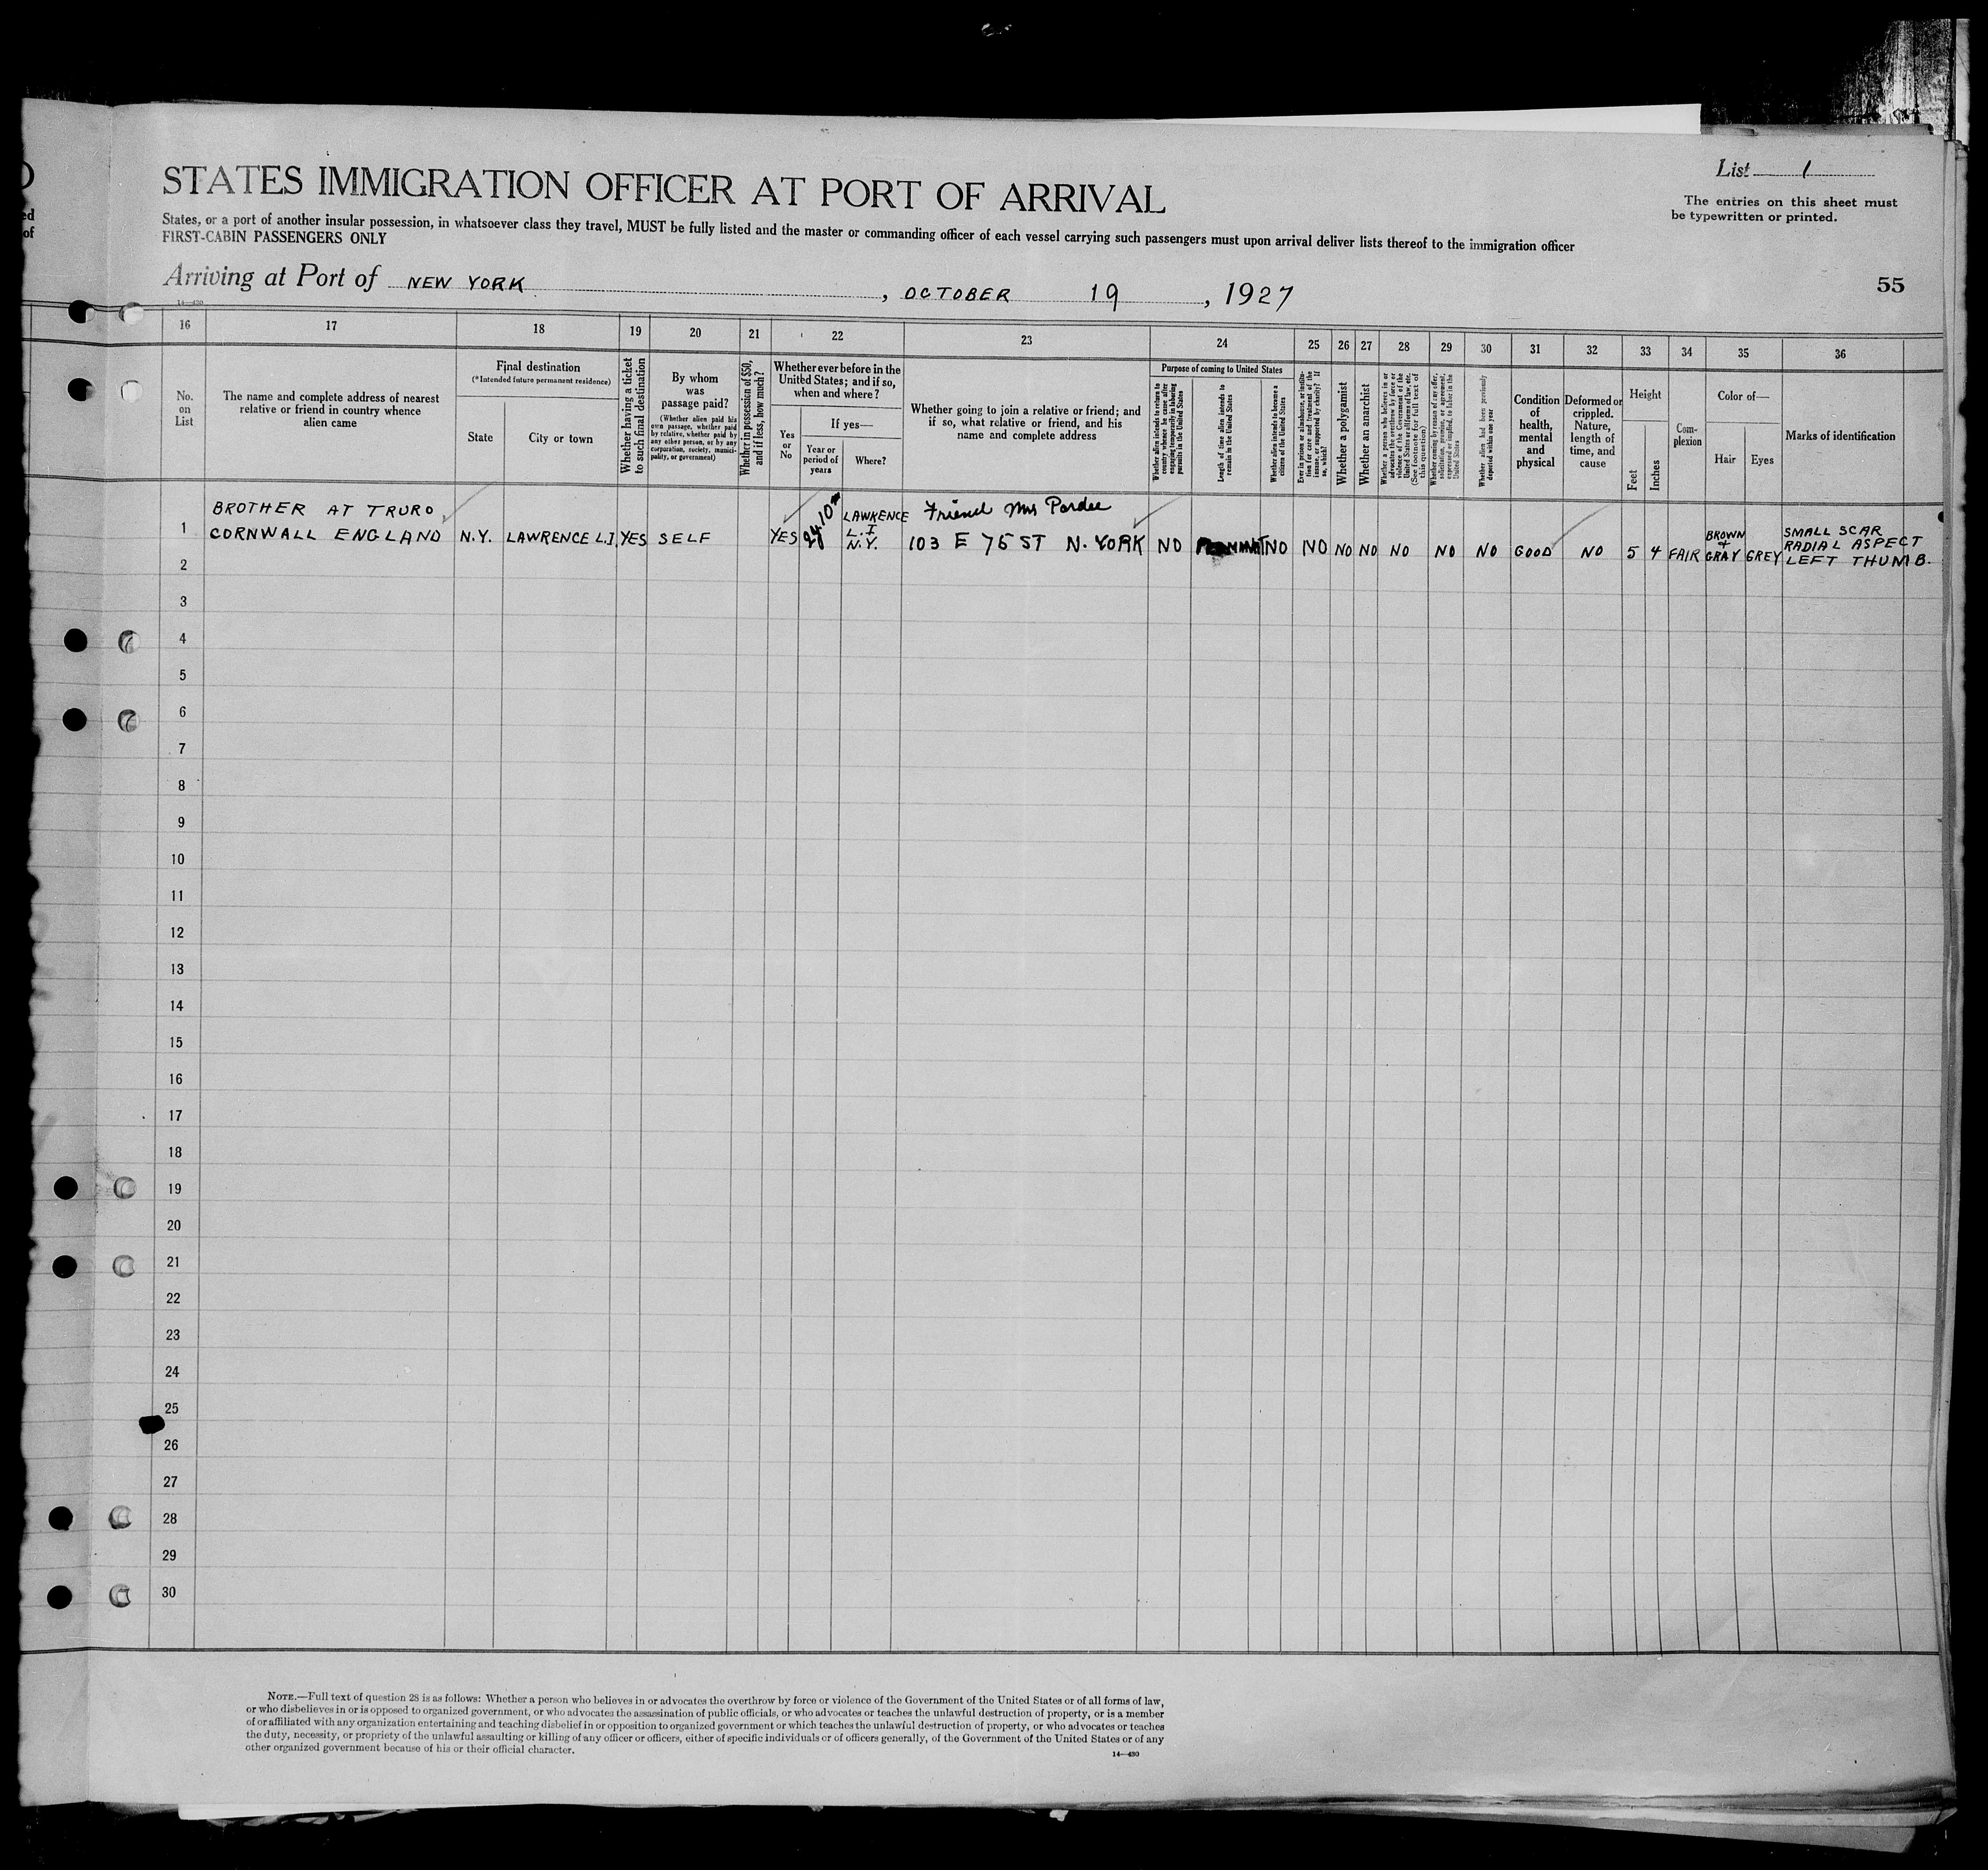 List 1
The entries on this sheet must
be typewritten or printed.
STATES IMMIGRATION OFFICER AT PORT OF ARRIVAL
States, or a port of another insular possession, in whatsoever class they travel, MUST be fully listed and the master or commanding officer of each vessel carrying such passengers must upon arrival deliver lists thereof to the immigration officer
FIRST-CABIN PASSENGERS ONLY
Arriving at Port of NEW YORK, OCTOBER 19, 1927
55
14—430
16 17 18 19 20 21 22 23 24 25 26 27 28 29 30 31 32 33 34 35 36
No.
on
List
The name and complete address of nearest
relative or friend in country whence
alien came
Final destination
(*Intended future permanent residence)
State
City or town
Whether having a ticket
to such final destination
By whom
was
passage paid?
(Whether alien paid his
own passage, whether paid
by relative, whether paid by
any other person, or by any
corporation, society, munici-
pality, or government)
Whether in possession of $50,
and if less, how much?
Whether ever before in the
United States; and if so,
when and where?
Yes
or
No
If yes—
Year or
period of
years
Where?
Whether going to join a relative or friend; and
if so, what relative or friend, and his
name and complete address
Purpose of coming to United States
Whether alien intends to return to
country whence he came after
engaging temporarily in laboring
pursuits in the United States
Length of time alien intends to
remain in the United States
Whether alien intends to become a
citizen of the United States
Ever in prison or almshouse, or institu-
tion for care and treatment of the
insane, or supported by charity? If
so, which?
Whether a polygamist
Whether an anarchist
Whether a person who believes in or
advocates the overthrow by force or
violence of the Government of the
United States or all forms of law, etc.
(See footnote for full text of
this question)
Whether coming by reason of any offer,
solicitation, promise, or agreement,
expressed or implied, to labor in the
United States
Whether alien had been previously
deported within one year
Condition
of
health,
mental
and
physical
Deformed or
crippled.
Nature,
length of
time, and
cause
Height
Feet
Inches
Com-
plexion
Color of—
Hair
Eyes
Marks of identification
1
BROTHER AT TRURO
CORNWALL ENGLAND
N.Y.
LAWRENCE L.I.
YES
SELF
YES
LAWRENCE
L.I
N.Y.
Friend Mrs Pardee
103 E 75 ST N. YORK
NO
NO
NO
NO
NO
NO
NO
NO
GOOD
NO
5
4
FAIR
BROWN
+
GRAY
GREY
SMALL SCAR
RADIAL ASPECT
LEFT THUMB.
2
3
4
5
6
7
8
9
10
11
12
13
14
15
16
17
18
19
20
21
22
23
24
25
26
27
28
29
30
NOTE.—Full text of question 28 is as follows: Whether a person who believes in or advocates the overthrow by force or violence of the Government of the United States or of all forms of law,
or who disbelieves in or is opposed to organized government, or who advocates the assassination of public officials, or who advocates or teaches the unlawful destruction of property, or is a member
of or affiliated with any organization entertaining and teaching disbelief in or opposition to organized government or which teaches the unlawful destruction of property, or who advocates or teaches
the duty, necessity, or propriety of the unlawful assaulting or killing of any officer or officers, either of specific individuals or of officers generally, of the Government of the United States or of any
other organized government because of his or their official character.
14—430